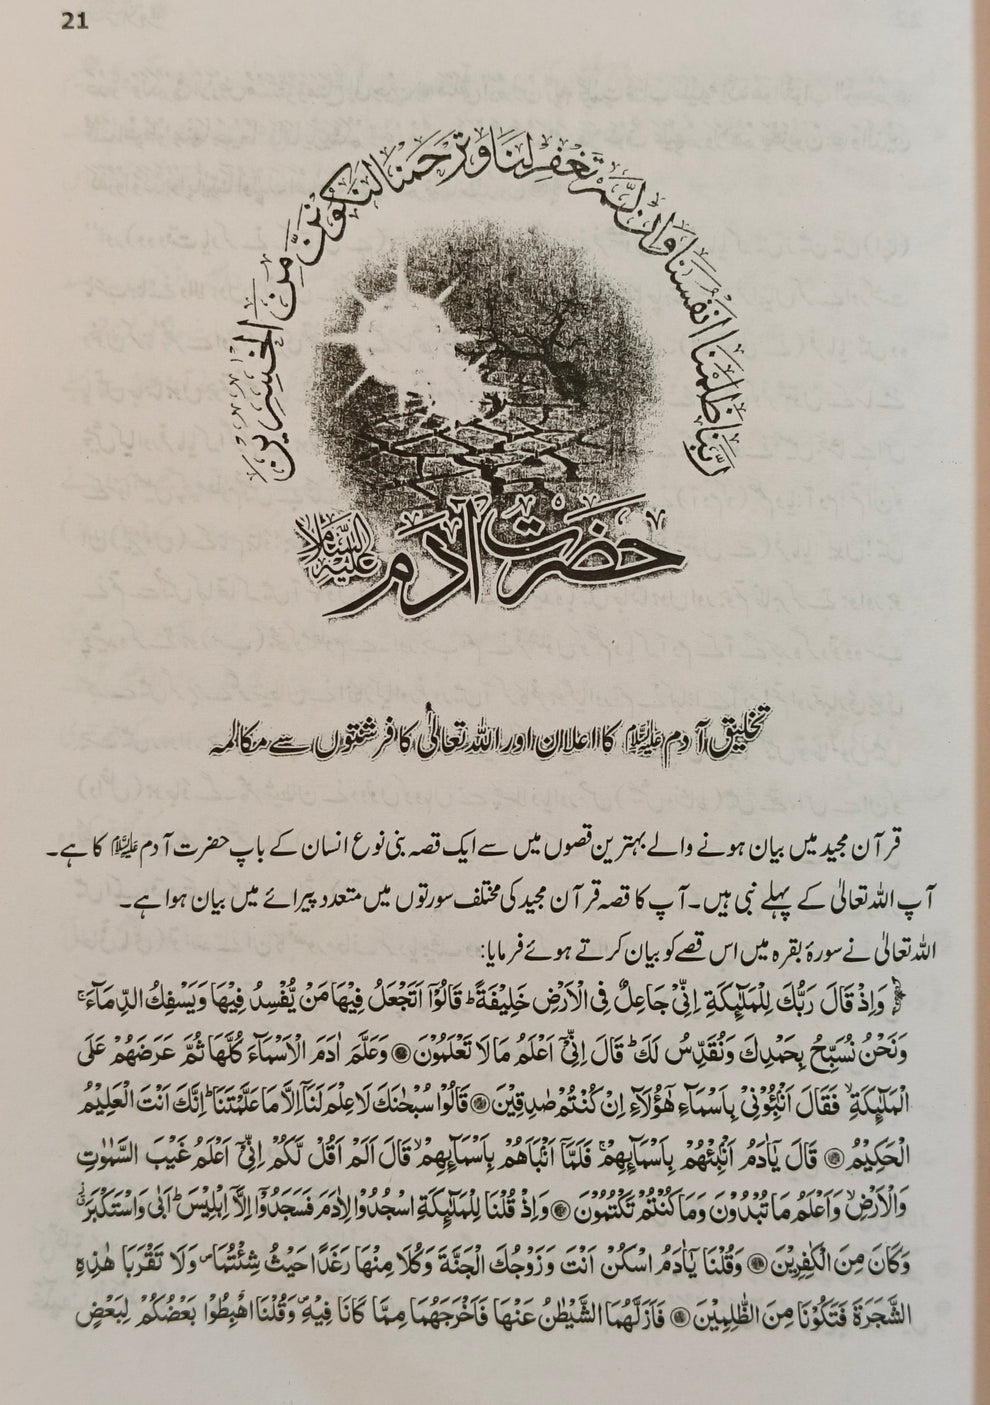 21
رَبَّنَا ظَلَمْنَا اَنْفُسَنَا وَاِنْ لَّمْ تَغْفِرْ لَنَا وَتَرْحَمْنَا لَنَكُوْنَنَّ مِنَ الْخٰسِرِيْنَ
حضرت آدم علیہ السلام
تخلیق آدم علیہ السلام کا اعلان اور اللہ تعالیٰ کا فرشتوں سے مکالمہ
قرآن مجید میں بیان ہونے والے بہترین قصوں میں سے ایک قصہ بنی نوع انسان کے باپ حضرت آدم علیہ السلام کا ہے۔
آپ اللہ تعالیٰ کے پہلے نبی ہیں۔ آپ کا قصہ قرآن مجید کی مختلف سورتوں میں متعدد پیرائے میں بیان ہوا ہے۔
اللہ تعالیٰ نے سورۂ بقرہ میں اس قصے کو بیان کرتے ہوئے فرمایا:
﴿وَاِذْ قَالَ رَبُّكَ لِلْمَلٰٓئِكَةِ اِنِّيْ جَاعِلٌ فِي الْاَرْضِ خَلِيْفَةً ؕ قَالُوْٓا اَتَجْعَلُ فِيْهَا مَنْ يُّفْسِدُ فِيْهَا وَيَسْفِكُ الدِّمَآءَ ۚ
وَنَحْنُ نُسَبِّحُ بِحَمْدِكَ وَنُقَدِّسُ لَكَ ؕ قَالَ اِنِّيْٓ اَعْلَمُ مَا لَا تَعْلَمُوْنَ ۝ وَعَلَّمَ اٰدَمَ الْاَسْمَآءَ كُلَّهَا ثُمَّ عَرَضَهُمْ عَلَى
الْمَلٰٓئِكَةِ ۙ فَقَالَ اَنْۢبِـُٔوْنِيْ بِاَسْمَآءِ هٰٓؤُلَآءِ اِنْ كُنْتُمْ صٰدِقِيْنَ ۝ قَالُوْا سُبْحٰنَكَ لَا عِلْمَ لَنَآ اِلَّا مَا عَلَّمْتَنَا ؕ اِنَّكَ اَنْتَ الْعَلِيْمُ
الْحَكِيْمُ ۝ قَالَ يٰٓاٰدَمُ اَنْۢبِئْهُمْ بِاَسْمَآئِهِمْ ۚ فَلَمَّآ اَنْۢبَاَهُمْ بِاَسْمَآئِهِمْ ۙ قَالَ اَلَمْ اَقُلْ لَّكُمْ اِنِّيْٓ اَعْلَمُ غَيْبَ السَّمٰوٰتِ
وَالْاَرْضِ ۙ وَاَعْلَمُ مَا تُبْدُوْنَ وَمَا كُنْتُمْ تَكْتُمُوْنَ ۝ وَاِذْ قُلْنَا لِلْمَلٰٓئِكَةِ اسْجُدُوْا لِاٰدَمَ فَسَجَدُوْٓا اِلَّآ اِبْلِيْسَ ؕ اَبٰى وَاسْتَكْبَرَ ۫
وَكَانَ مِنَ الْكٰفِرِيْنَ ۝ وَقُلْنَا يٰٓاٰدَمُ اسْكُنْ اَنْتَ وَزَوْجُكَ الْجَنَّةَ وَكُلَا مِنْهَا رَغَدًا حَيْثُ شِئْتُمَا ۪ وَلَا تَقْرَبَا هٰذِهِ
الشَّجَرَةَ فَتَكُوْنَا مِنَ الظّٰلِمِيْنَ ۝ فَاَزَلَّهُمَا الشَّيْطٰنُ عَنْهَا فَاَخْرَجَهُمَا مِمَّا كَانَا فِيْهِ ۪ وَقُلْنَا اهْبِطُوْا بَعْضُكُمْ لِبَعْضٍ